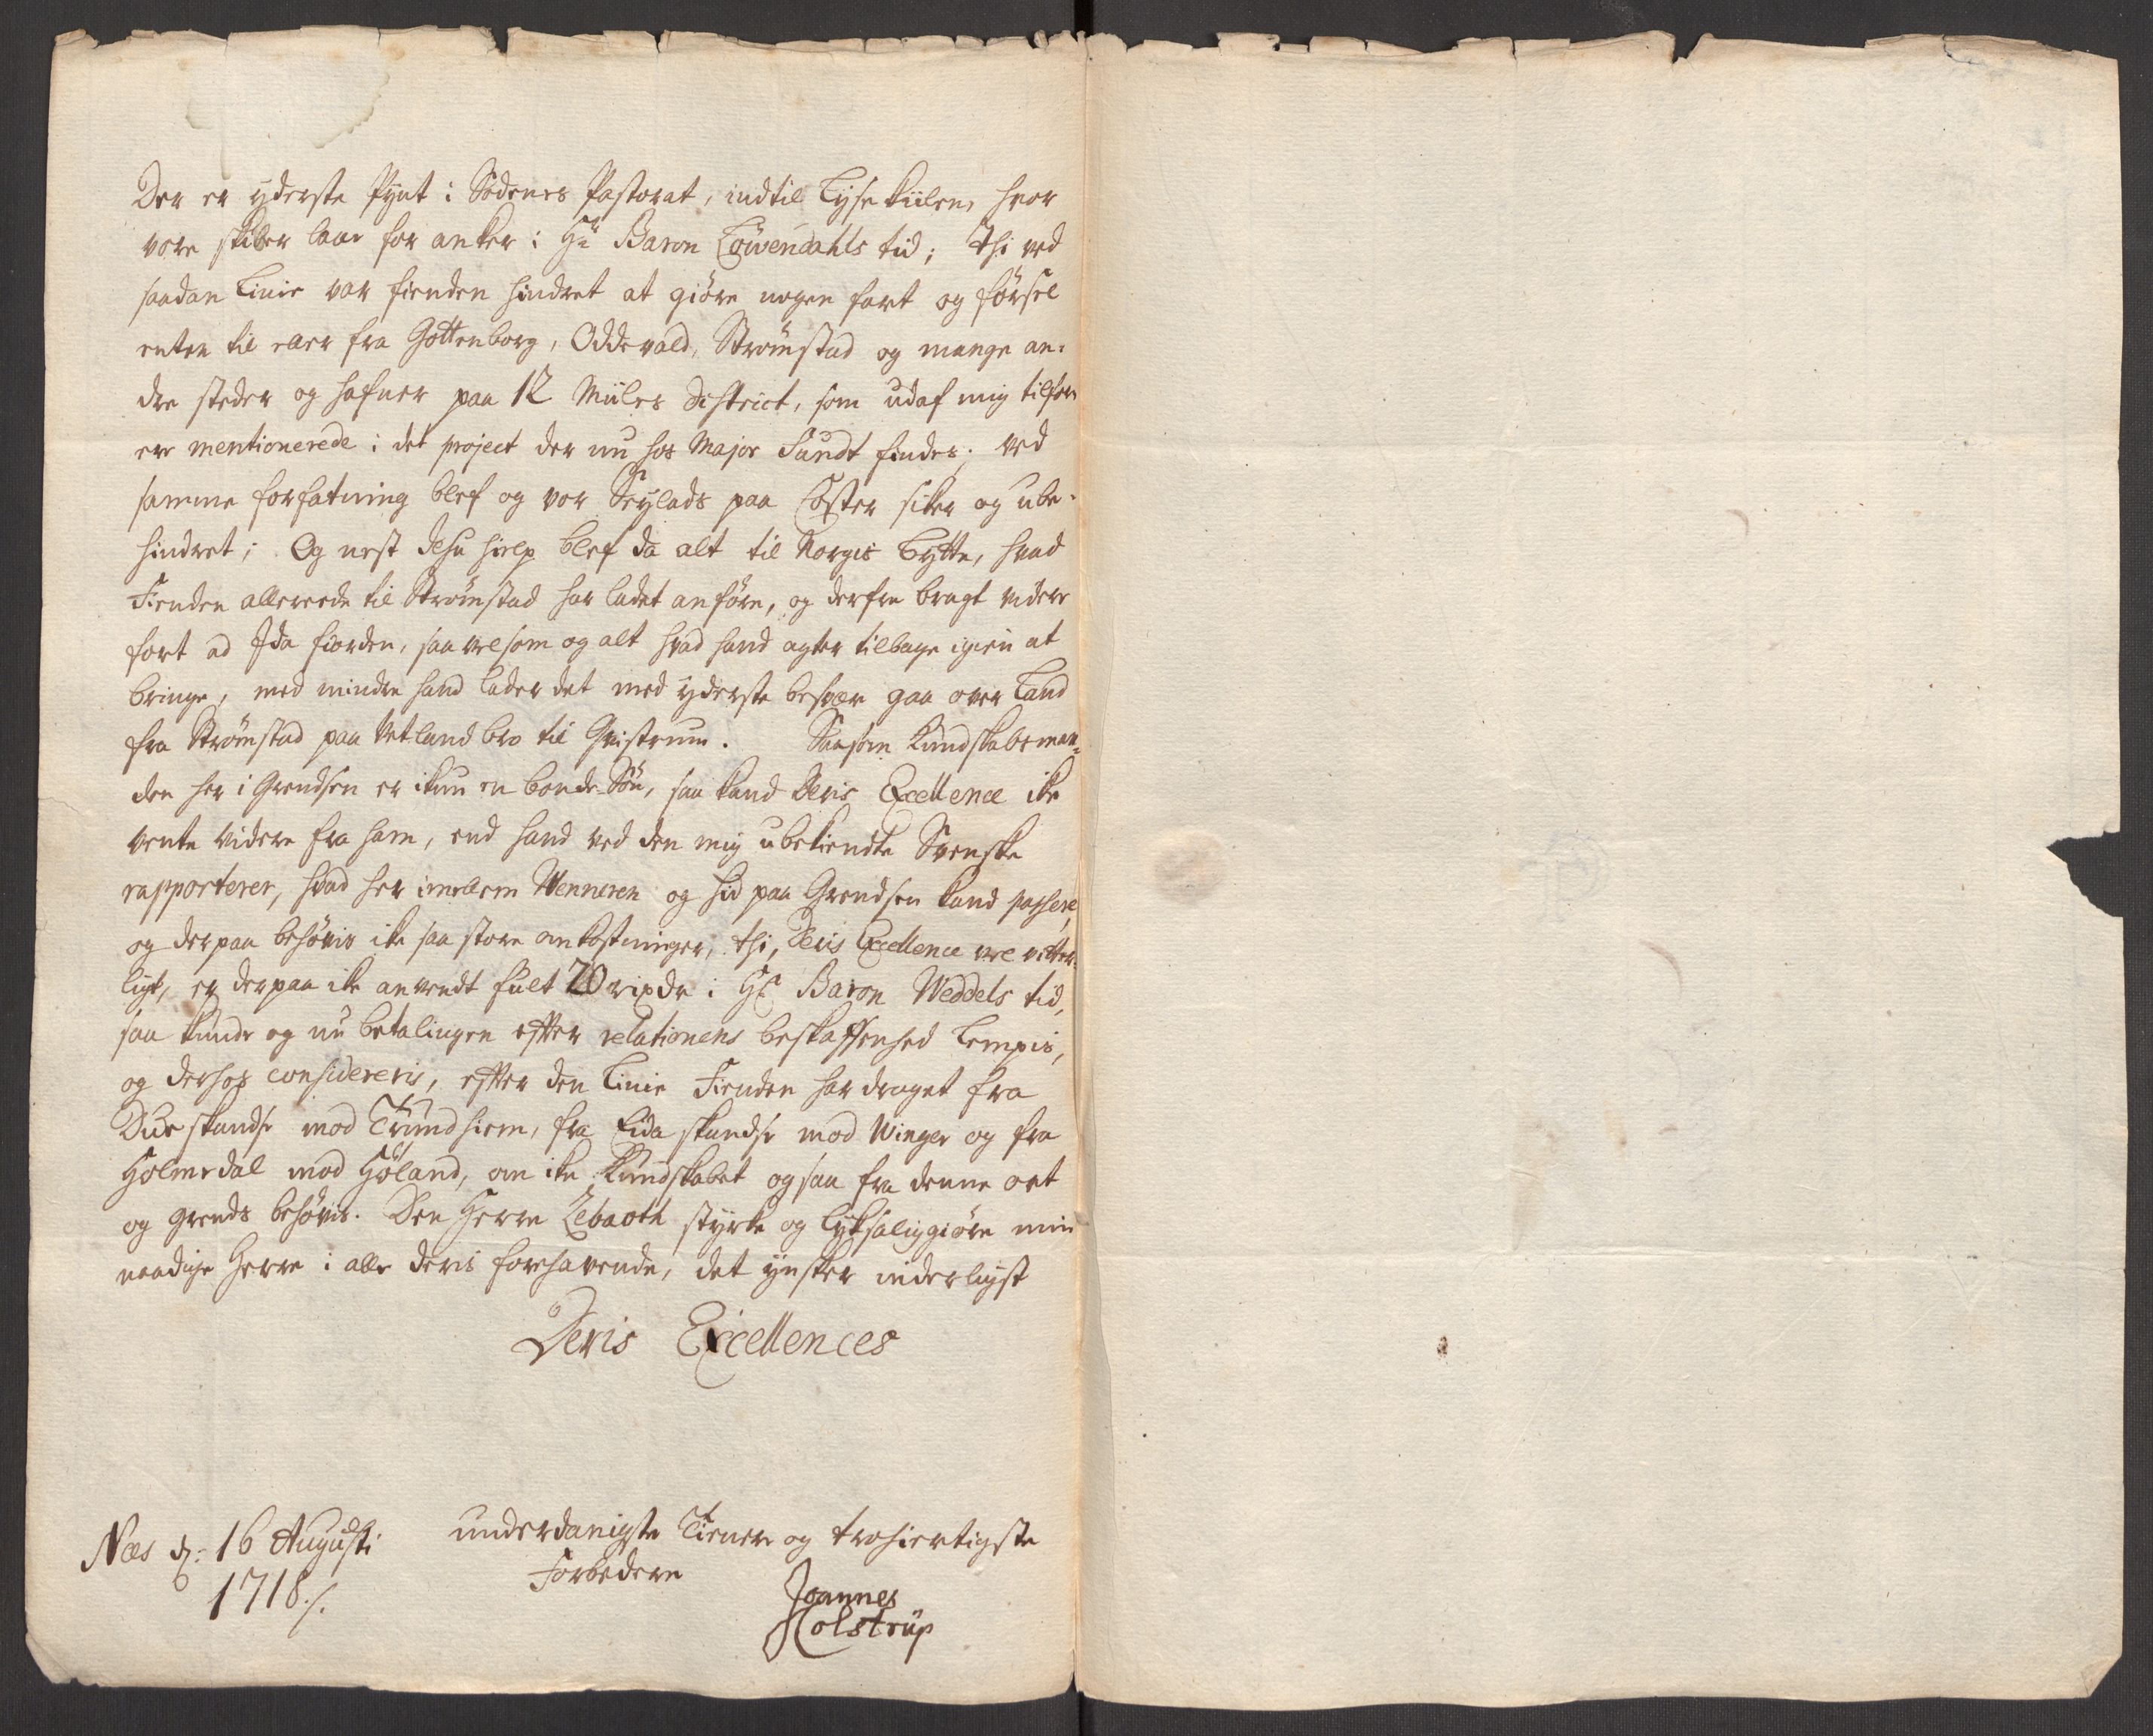 Der er yderste Pynt i Sødenes Pastorat, indtil Lyse kiilen, hvor
vore skiber laae for anker i Hr Baron Löwendahls tid; Thi ved
saadan Linie var fienden hindret at giöre nogen fart og försel
enten til eller fra Gottenborg, Oddevald, Strömstad og mange an-
dre steder og hafner paa 12 Miiles District, som udaf mig tilforn
ere mentionerede i det project der nu hos Major Sundt findes; ved
samme forfatning blef og vor Seylads paa Coster siker og ube-
hindret; Og nest Jesu hielp blef da alt til Norgis bytte, hvad
Fienden allereede til Strömstad har ladet anföre, og derfra bragt videre
fort ad Ida fiorden, saa vel som og alt hvad hand agter tilbage igien at
bringe, med mindre hand lader det med yderste besvær gaa over Land
fra Strömstad paa Wetland bro til Qvistrum. Saasom Kundskabs man-
den her i Grendsen er ikun en bonde-Sön, saa kand Deris Excellence ike
vente videre fra ham, end hand ved den mig ubekiendte Svenske
rapporterer, hvad her imellem Wenneren og hid paa Grendsen kand passere,
og derpaa behövis ike saa store omkostninger, thi, Deris Excellence vel vitter-
ligt, er derpaa ike anvendt fult 20 rixdr i Hr Baron Weddels tid,
saa kunde og nu betalingen efter relationens beskaffenhed Lempis,
og derhos considereris, efter den Linie Fienden har draget fra
Due skandse mod Trundhiem, fra Eida skandse mod Winger og fra
Holmedal mod Höland, om ike Kundskabet og saa fra denne ort
og grends behövis. Den Herre Zebaoth styrke og lyksaliggiöre min
naadige Herre i alle deris forehavende, det ynsker inderligst
Deris Excellences
underdanigste Tienere og trohiertigste
Forbedere
Joannes
Colstrup
Næs d: 16 Augusti
1718 ./.